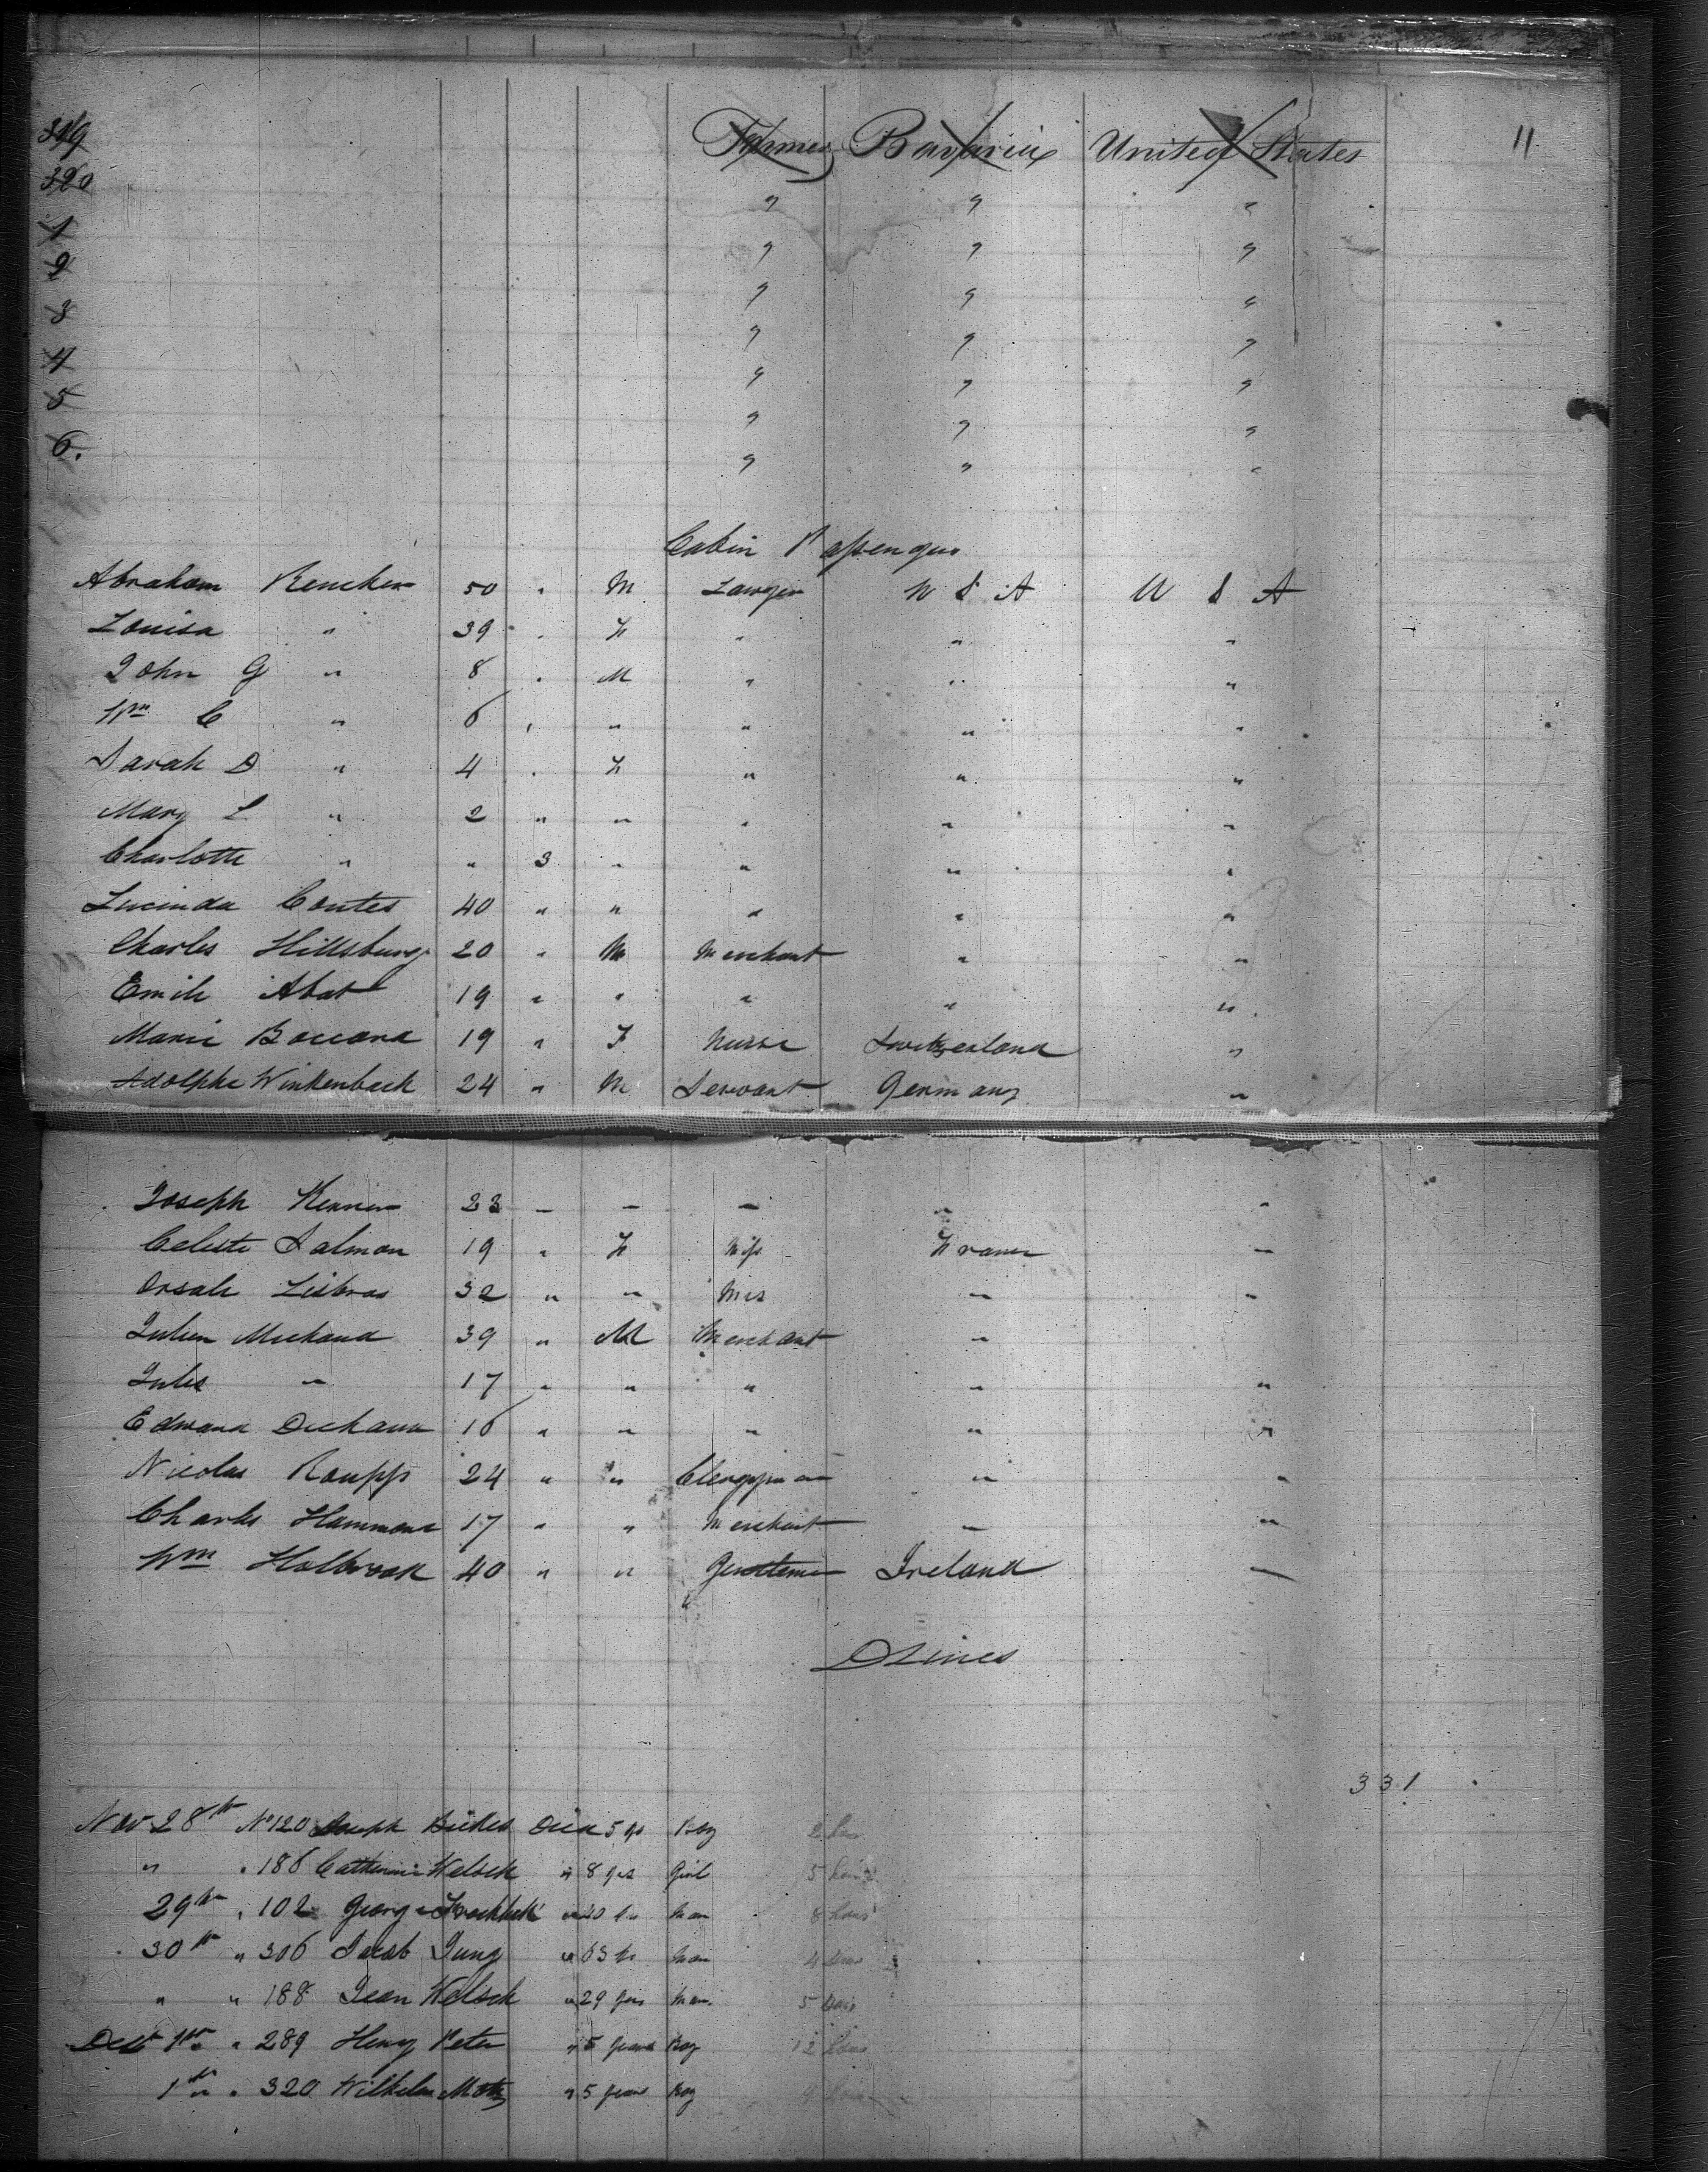 319 Farmer Bavaria United States 11
320 " " "
1 " " "
2 " " "
3 " " "
4 " " "
5 " " "
6. " " "
Cabin Passengers
Abraham Rencher 50 " M Lawyer U S A U S A
Louisa " 39 " F " " "
John G " 8 " M " " "
Wm C " 6 " " " " "
Sarah D " 4 " F " " "
Mary L " 2 " " " " "
Charlotte " " 3 " " " "
Lucinda Coutes 40 " " " " "
Charles Hillsburg 20 " M Merchant " "
Emile Abat 19 " " " " "
Marie Boccard 19 " F Nurse Switzerland "
Adolphe Winkenbach 24 " M Servant Germany "
Joseph 23 " " " " "
Celeste Salmon 19 " F Miss France "
32 " " Mrs " "
Julien Michaud 39 " M Merchant " "
Jules " 17 " " " " "
Edward 16 " " " " "
Nicolas Roupp 24 " " Clergyman " "
Charles Hammond 17 " " Merchant " "
Wm Holbrook 40 " " Gentleman Ireland "
331
Nov 28th No 120 Joseph Died 5 ys Boy 2
" " 186 Catherine Welsch " 8 yrs Girl 5
29th " 102 George " Man 8
30th " 306 Jacob Jung " 63 Man 4
" " 188 Jean Welsch " 29 yrs Man. 5
Dec 1st " 289 Henry Peter " 5 years Boy 12
1st " 320 Wilhelm Motz " 5 years Boy 9